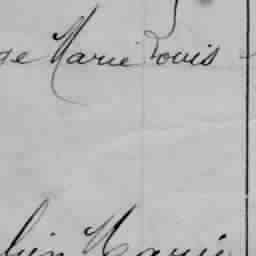 ge Marie Louis
lin Marie